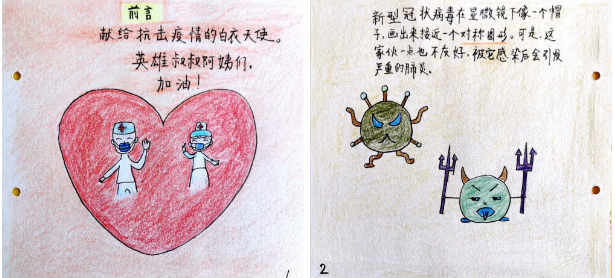 前言
献给抗击疫情的白衣天使。
英雄叔叔阿姨们，
加油！
1
新型冠状病毒在显微镜下像一个帽
子，画出来接近一个对称图形。可是，这
家伙一点也不友好，被它感染后会引发
严重的肺炎。
2